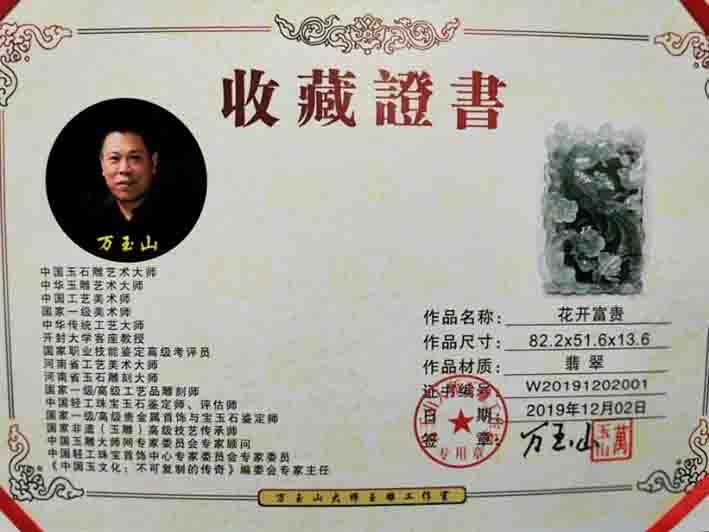 收藏證書
万玉山
中国玉石雕艺术大师
中华玉雕艺术大师
中国工艺美术师
国家一级美术师
中华传统工艺大师
开封大学客座教授
国家职业技能鉴定高级考评员
河南省工艺美术大师
河南省玉石雕刻大师
国家一级/高级工艺品雕刻师
中国轻工珠宝玉石鉴定师、评估师
国家一级/高级贵金属首饰与宝玉石鉴定师
国家非遗（玉雕）高级技艺传承师
中国玉雕大师网专家委员会专家顾问
中国轻工珠宝首饰中心专家委员会专家委员
《中国玉文化：不可复制的传奇》编委会专家主任
作品名称: 花开富贵
作品尺寸: 82.2x51.6x13.6
作品材质: 翡翠
证书编号: W20191202001
日期: 2019年12月02日
签章: 万玉山
专用章
萬玉山
万玉山大师玉雕工作室